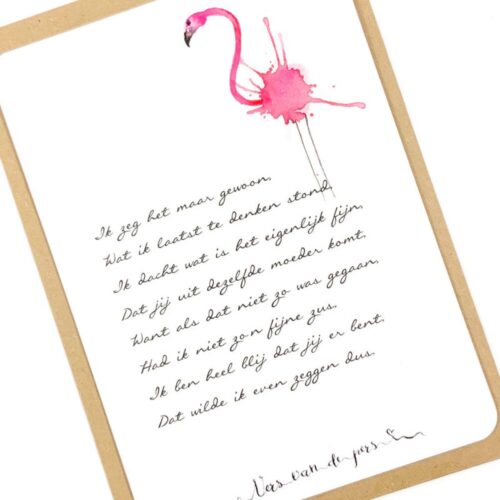 Ik zeg het maar gewoon,
Wat ik laatst te denken stond,
Ik dacht wat is het eigenlijk fijn,
Dat jij uit dezelfde moeder komt,
Want als dat niet zo was gegaan,
Had ik niet zo'n fijne zus.
Ik ben heel blij dat jij er bent,
Dat wilde ik even zeggen dus.
Vers van de pers